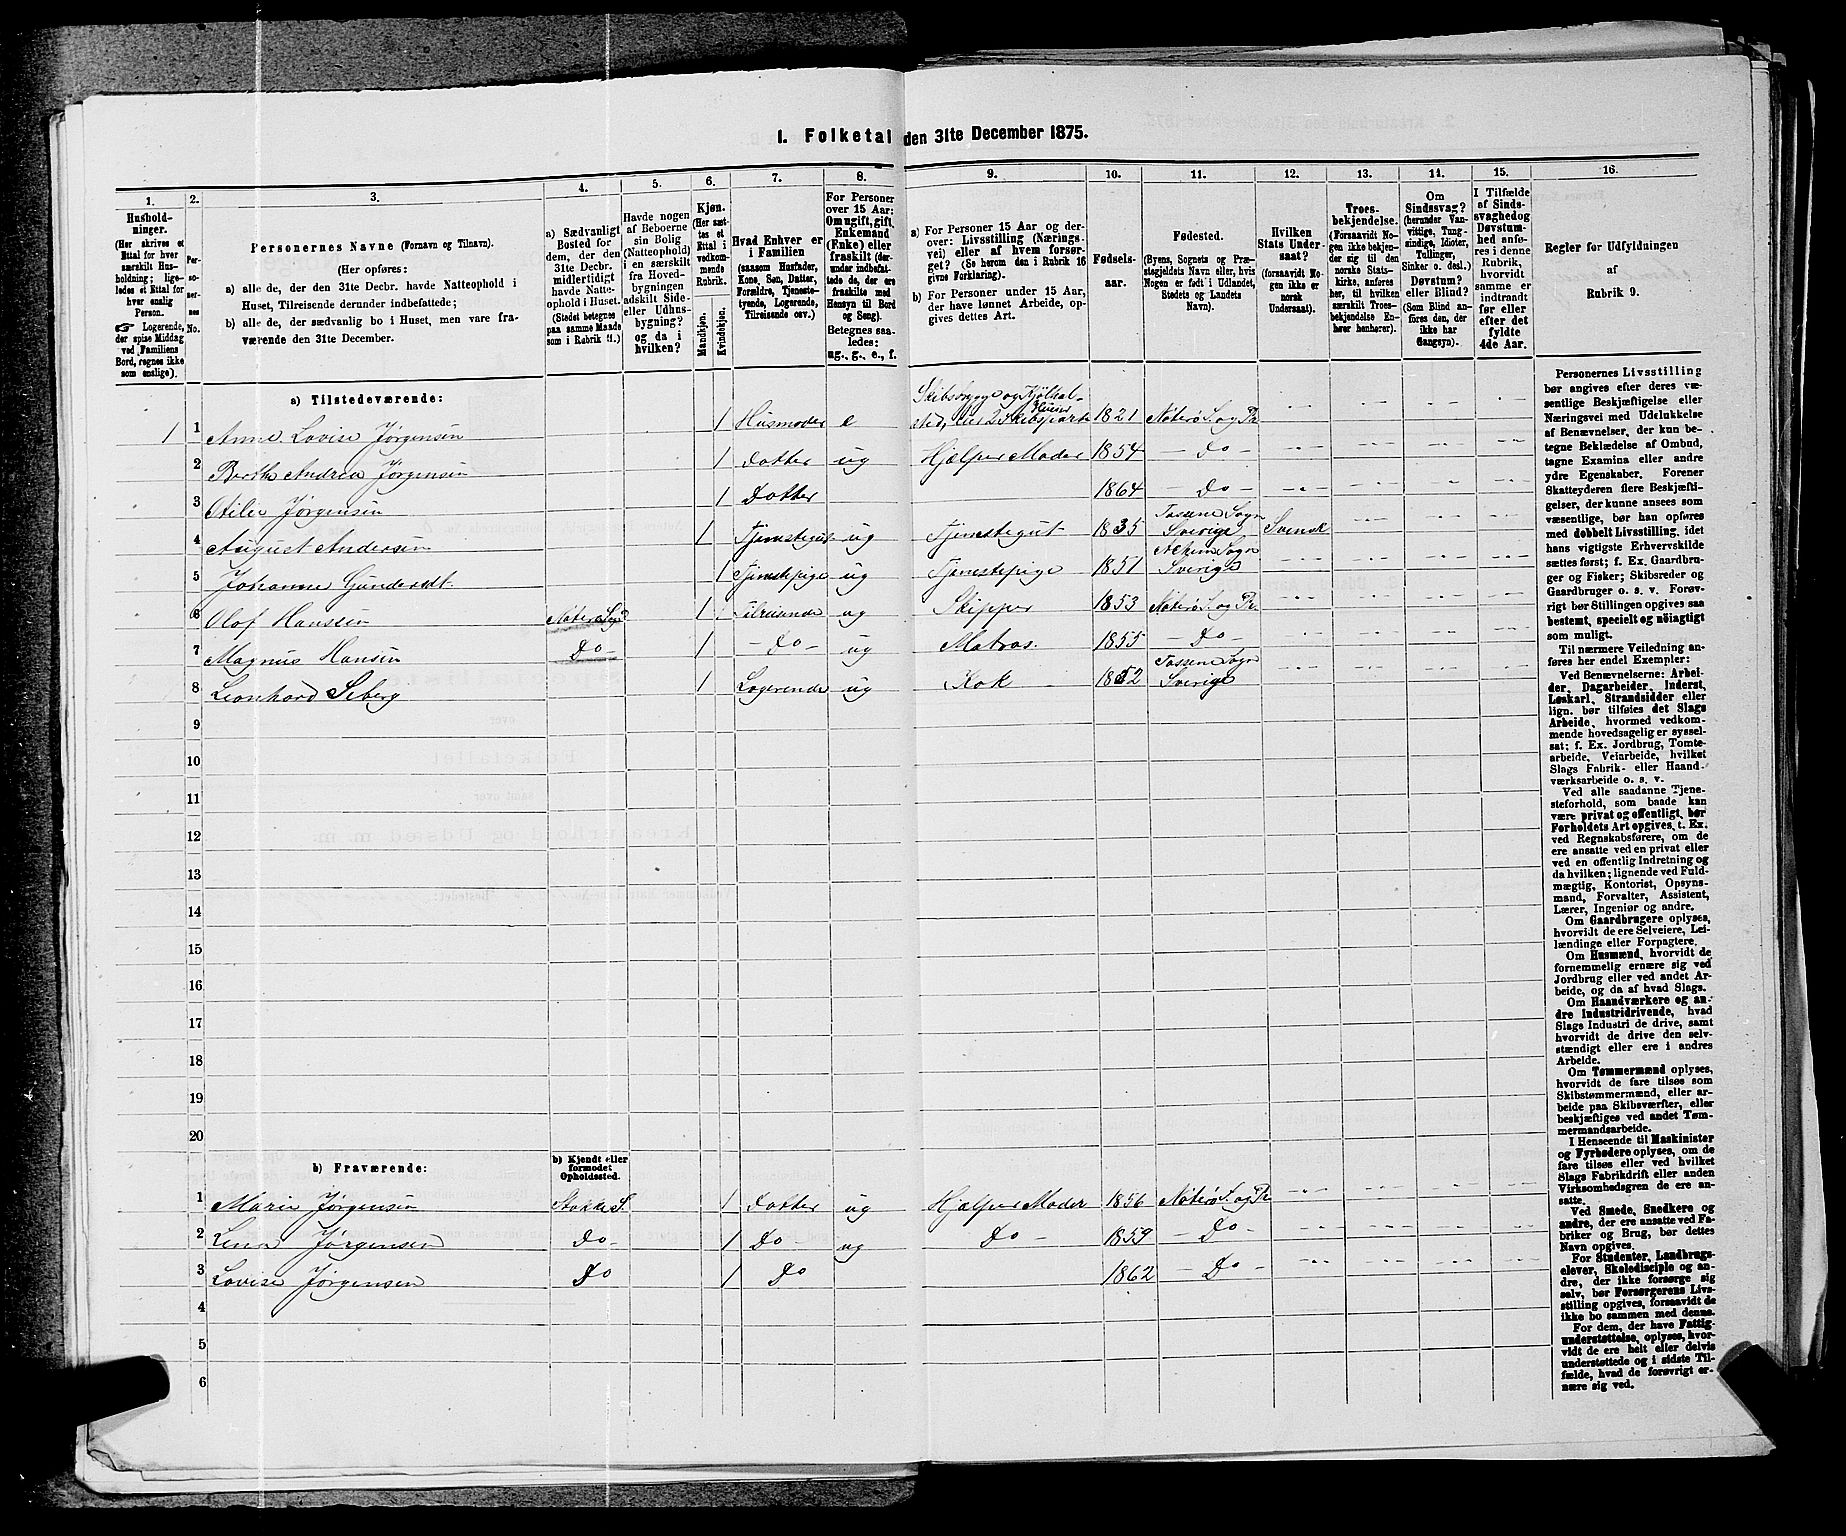 1. Folketal den 31te December 1875.
1. 2. 3. 4. 5. 6. 7. 8. 9. 10. 11. 12. 13. 14. 15. 16.
Husholdninger. (Her skrives et Ettal for hver særskilt Husholdning; ligeledes et Ettal for hver enslig Person. ☞ Logerende, der spise Middag ved Familiens Bord, regnes ikke som enslige).
Personernes No.
Personernes Navne (Fornavn og Tilnavn).
(Her opføres:
a) alle de, der den 31te Decbr. havde Natteophold i Huset, Tilreisende derunder indbefattede;
b) alle de, der sædvanlig bo i Huset, men vare fraværende den 31te December.
a) Sædvanligt Bosted for dem, der den 31te Decbr. midlertidigt havde Natteophold i Huset. (Stedet betegnes paa samme Maade som i Rubrik 11.)
Havde nogen af Beboerne sin Bolig (Natteophold) i en særskilt fra Hovedbygningen adskilt Side- eller Udhusbygning? og da i hvilken?
Kjøn. (Her sættes et Ettal i vedkommende Rubrik. Mandkjøn. Kvindekjøn.
Hvad Enhver er i Familien (saasom Husfader, Kone, Søn, Datter, Forældre, Tjenestetyende, Logerende, Tilreisende osv.)
For Personer over 15 Aar: Om ugift, gift, Enkemand (Enke) eller fraskilt (derunder indbefattede de, der ere fraskilte med Hensyn til Bord og Seng). Betegnes saaledes: ug., g., e., f.
a) For Personer 15 Aar og derover: Livsstilling (Næringsvei) eller af hvem forsørget? (Se herom den i Rubrik 16 givne Forklaring).
b) For Personer under 15 Aar, der have lønnet Arbeide, opgives dettes Art.
Fødselsaar.
Fødested. (Byens, Sognets og Præstegjeldets Navn eller, hvis Nogen er født i Udlandet, Stedets og Landets Navn).
Hvilken Stats Undersaat? (forsaavidt Nogen ikke er norsk Undersaat).
Troesbekjendelse. (Forsaavidt Nogen ikke bekjender sig til den norske Statskirke, anføres her, til hvilken særskilt Troesbekjendelse Enhver henhører).
Om Sindssvag? (herunder Vanvittige, Tungsindige, Idioter, Tullinger, Sinker o. desl.) Døvstum? eller Blind? (Som Blind anføres den, der ikke har Gangsyn).
I Tilfælde af Sindssvaghed og Døvstumhed anføres i denne Rubrik, hvorvidt samme er indtraadt før eller efter det fyldte 4de Aar.
Regler for Udfyldningen af Rubrik 9.
a) Tilstedeværende:
1 1 Anne Lovise Jørgensen 1 Husmoder e Skibsbrygg og Kjølhalsted, eier 2 Skibsparter 1821 Nøterø S. og Pr
2 Berthe Andrea Jørgensen 1 Datter ug Hjælper Moder 1854 – Do –
3 Jørgensen 1 Datter 1864 – Do –
4 August Andersen 1 Tjenestegut ug Tjenestegut 1835 Tossene Sogn Sverige Svensk
5 Johanne Gunderdt. 1 Tjenestepige ug Tjenestepige 1851 Sogn Sverige
6 Olof Hanssen Nøterø Sogn 1 Tilreisende ug Skipper 1853 Nøterø S. og Pr.
7 Magnus Hansen Do – 1 – Do – ug Matros. 1855 – Do –
8 Leonhard Seberg 1 Logerende ug Kok 1852 Tossene Sogn Sverige
9
10
11
12
13
14
15
16
17
18
19
20
b) Fraværende: b) Kjendt eller formodet Opholdssted.
1 Marie Jørgensen Stokke S. 1 Datter ug Hjælper Moder 1856 Nøterø S. og Pr
2 Lena Jørgensen Do – 1 Do – ug Do – 1859 – Do –
3 Lovise Jørgensen Do 1 Do 1862 – Do –
4
5
6
Personernes Livsstilling
bør angives efter deres væ-
sentlige Beskjæftigelse eller
Næringsvei med Udelukkelse
af Benævnelser, der kun be-
tegne Beklædelse af Ombud,
tagne Examina eller andre
ydre Egenskaber. Forener
Skatteyderen flere Beskjæfti-
gelser, der kunne ansees som
væsentlige, bør han opføres
med dobbelt Livsstilling, idet
hans vigtigste Erhvervskilde
sættes først; f. Ex. Gaardbru-
ger og Fisker; Skibsreder og
Gaardbruger o. s. v. Forøv-
rigt bør Stillingen opgives saa
bestemt, specielt og nøiagtigt
som muligt.
Til nærmere Veiledning an-
føres her endel Exempler:
Ved Benævnelserne: Arbei-
der, Dagarbeider, Inderst,
Løskarl, Strandsidder eller
lign. bør tilføies det Slags
Arbeide, hvormed vedkom-
mende hovedsagelig er syssel-
sat; f. Ex. Jordbrug, Tomte-
arbeide, Veiarbeide, hvilket
Slags Fabrik- eller Haand-
værksarbeide o. s. v.
Ved alle saadanne Tjene-
steforhold, som baade kan
være privat og offentligt, bør
Forholdets Art opgives, t. Ex.
ved Regnskabsførere, om de
ere ansatte ved en privat eller
ved en offentlig Indretning og
da hvilken; lignende ved Fuld-
mægtig, Kontorist, Opsyns-
mand, Forvalter, Assistent,
Lærer, Ingeniør og andre.
Om Gaardbrugere oplyses,
hvorvidt de ere Selveiere, Lei-
lændinge eller Forpagtere.
Om Husmænd, hvorvidt de
fornemmelig ernære sig ved
Jordbrug eller ved andet Ar-
beide, og da af hvad Slags.
Om Haandværkere og an-
dre Industridrivende, hvad
Slags Industri de drive, samt
hvorvidt de drive den selv-
stændigt eller ere i andres
Arbeide.
Om Tømmermænd oplyses,
hvorvidt de fare tilsøs som
Skibstømmermænd, eller ar-
beide paa Skibsværfter, eller
beskjæftiges ved andet Tøm-
mermandsarbeide.
I Henseende til Maskinister
og Fyrbødere oplyses, om de
fare tilsøs eller ved hvilket
Slags Fabrikdrift eller anden
Virksomhedsgren de ere an-
satte.
Ved Smede, Snedkere og
andre, der ere ansatte ved Fa-
briker og Brug, bør dettes
Navn opgives.
For Studenter, Landbrugs-
elever, Skoledisciple og an-
dre, der ikke forsørge sig
selv, bør Forsørgerens Livs-
stilling opgives, forsaavidt de
ikke bo sammen med denne.
For dem, der have Fattig-
understøttelse, oplyses, hvor-
vidt de ere helt eller delvis
understøttede og i sidste Til-
fælde, hvad de forøvrigt er-
nære sig ved.